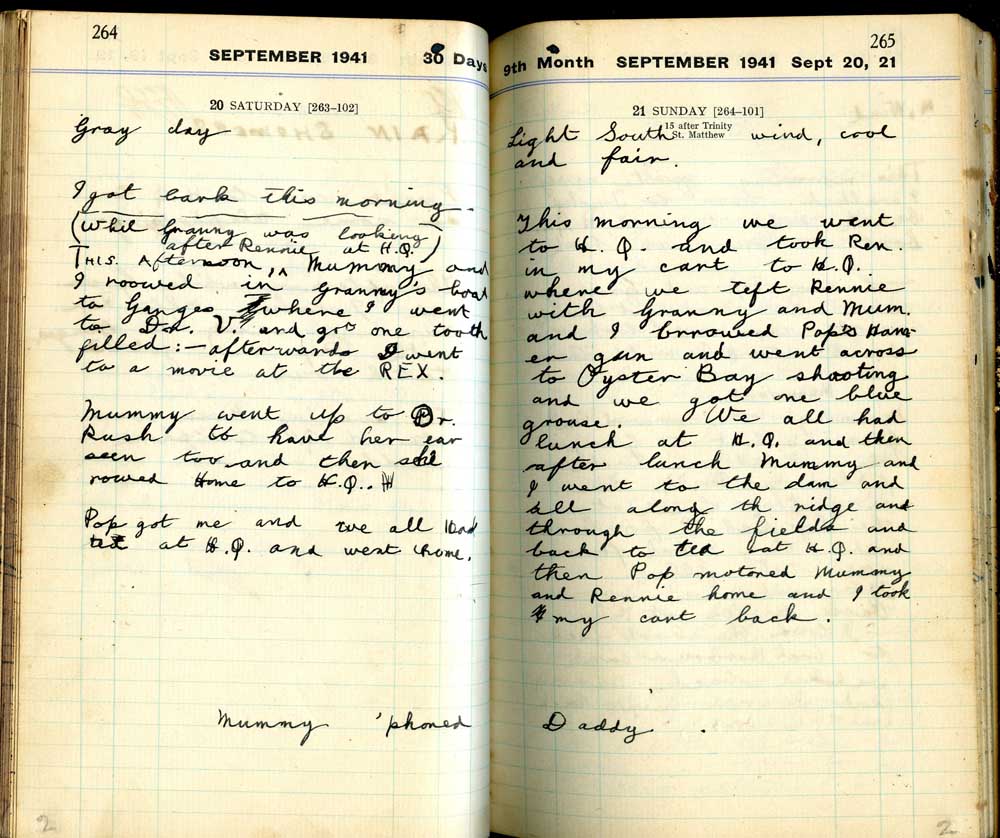 264
SEPTEMBER 1941 30 Days
20 SATURDAY [263-102]
Gray day
I got bark this morning.
(Whil Granny was looking
after Rennie at H.Q.)
THIS. Afternoon, ^ Mummy and
I roowed in Granny's boat
to Ganges where I went
to Dr. V. and got one tooth
filled:- afterwards I went
to a movie at the REX.
Mummy went up to Dr.
Rush to have her ear
seen too and then she
rowed Home to H.Q..
Pop got me and we all had
tea at H.Q. and went home.
Mummy 'phoned
2
265
9th Month SEPTEMBER 1941 Sept 20, 21
21 SUNDAY [264-101]
15 after Trinity
St. Matthew
Light South wind, cool
and fair.
This morning we went
to H.Q. and took Ren.
in my cart to H.Q..
where we left Rennie
with Granny and Mum.
and I brrowed Pop's Ham-
er gun and went across
to Oyster Bay shooting
and we got one blue
grouse. We all had
lunch at H.Q. and then
after lunch Mummy and
I went to the dam and
all along th ridge and
through the fields and
back to tea at H.Q. and
then Pop motored Mummy
and Rennie home and I took
my cart back.
Daddy.
2